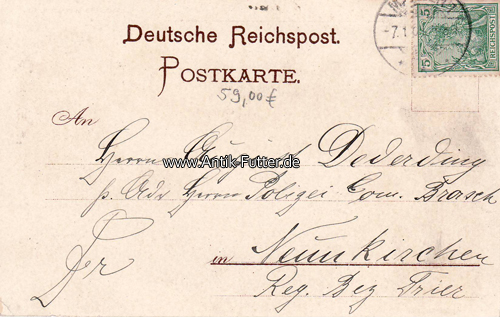 Deutsche Reichspost.
POSTKARTE.
59,00 €
5 REICHSPOST 5
-7.1.
An
Herrn August Dederding
www.Antik-Futter.de
p. Adr Herrn Polizei Com. Brasch
in Neunkirchen
Reg. Bez Trier